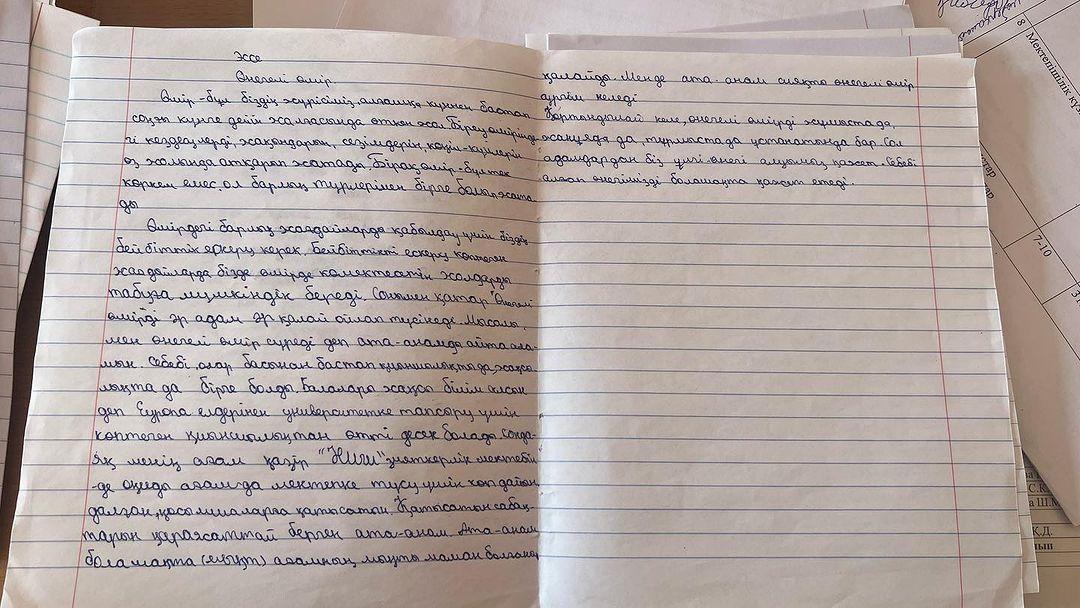 эссе
Өнегелі өмір.
Өмір - бұл біздің жүрісіміз, алғашқы күннен бастап
соңғы күнге дейін жалғасында өткен жол. Біреу өмірінде-
гі кездесулерді, жақындарын, сезімдерін, көңіл-күйлерін
өз жолында атқарып жатады. Бірақ, өмір - бұл тек
көркем емес, ол барлық түрлерімен бірге болып жата-
ды
Өмірдегі барлық жағдайларда қабылдау үшін біздің
бейбіттік ескеру керек. Бейбіттікті ескеру көптеген
жағдайларда бізде өмірде көмектесетін жолдарды
табуға мүмкіндік береді. Сонымен қатар "Өнегелі
өмірді әр адам әр қалай ойлап түсінеде. Мысалы,
мен өнегелі өмір сүреді деп ата-анамды айта ала-
мын. Себебі, олар басынан бастап қиыншылықтада, жақсы-
лықта да бірге болды. Балалары жақсы білім алсын
деп Еуропа елдерінен университетке тапсыру үшін
көптеген қиыншылықтан өтті десек болады. Сонда-
яқ менің ағам қазір "НИШ" зияткерлік мектебін
-де оқиды ағамда мектепке түсу үшін көп дайын
далған, қосымшаларға қатысатын. Қатысатын сабақ-
тарын қаражаттай берген ата-анам. Ата-анам
болашақта (мықт) ағамның мықты маман болғанын
қалайды. Менде ата-анам сияқты өнегелі өмір
сүргім келеді
Қортындылай келе, өнегелі өмірді жұмыстада,
жанұяда да, тұрмыстада ұстанатында бар. Сол
адамдардан біз үлгі-өнегі алуымыз қажет. Себебі
алған өнегімізді болашақта қажет етеді.
Мектепішілік
8
7-10
С.К.
Ш.М
К.Д.